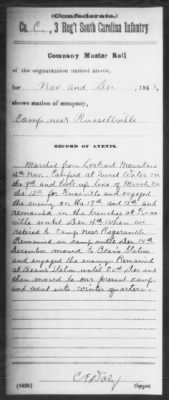 (Confederate.)
Co. C, 3 Reg't South Carolina Infantry
Company Muster Roll
of the organization named above,
for Nov and Dec, 186
shows station of company,
Camp near Russellville
RECORD OF EVENTS.
Marched from Lookout Mountain
Nov. Camped at Sweet Water on
the 9th and took up line of March on
the 12th for Knoxville and engaged
the enemy on the 17th and 18th and
remained in the trenches at Knox-
ville until Dec 4th when we
retired to Camp near Rogersville
Remained in camp until Dec 14th
December moved to Bean's Station
and engaged the enemy. Remained
at Bean's Station until 20th Dec and
then moved to our present camp
and went into winter quarters.
Copyist.